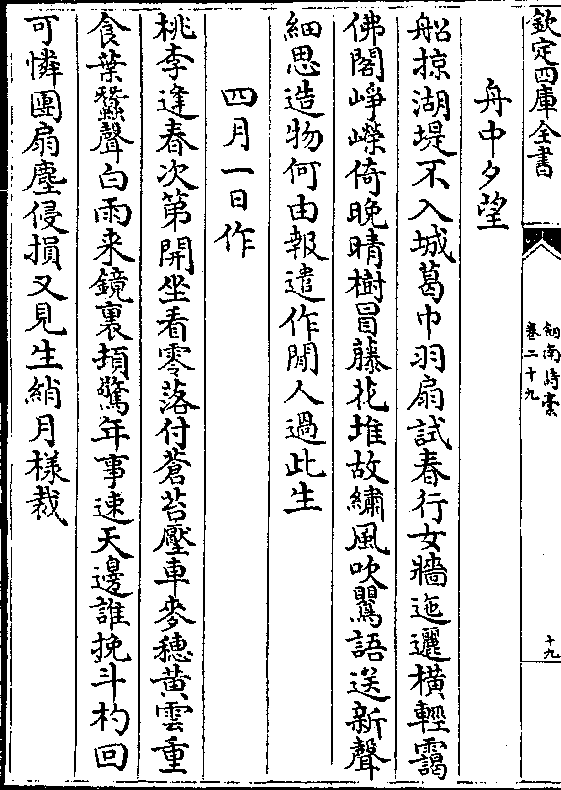 欽定四庫全書
劒南詩稾
卷二十九
十九
舟中夕望
船掠湖堤不入城葛巾羽扇試春行女牆迤邐橫輕靄
佛閣崢嶸倚晚晴樹冒藤花堆故繡風吹鸎語送新聲
細思造物何由報遣作閒人過此生
四月一日作
桃李逢春次第開坐看零落付蒼苔壓車麥穗黄雲重
食葉蠶聲白雨来鏡裏頓驚年事速天邊誰挽斗杓回
可憐團扇塵侵損又見生綃月樣裁